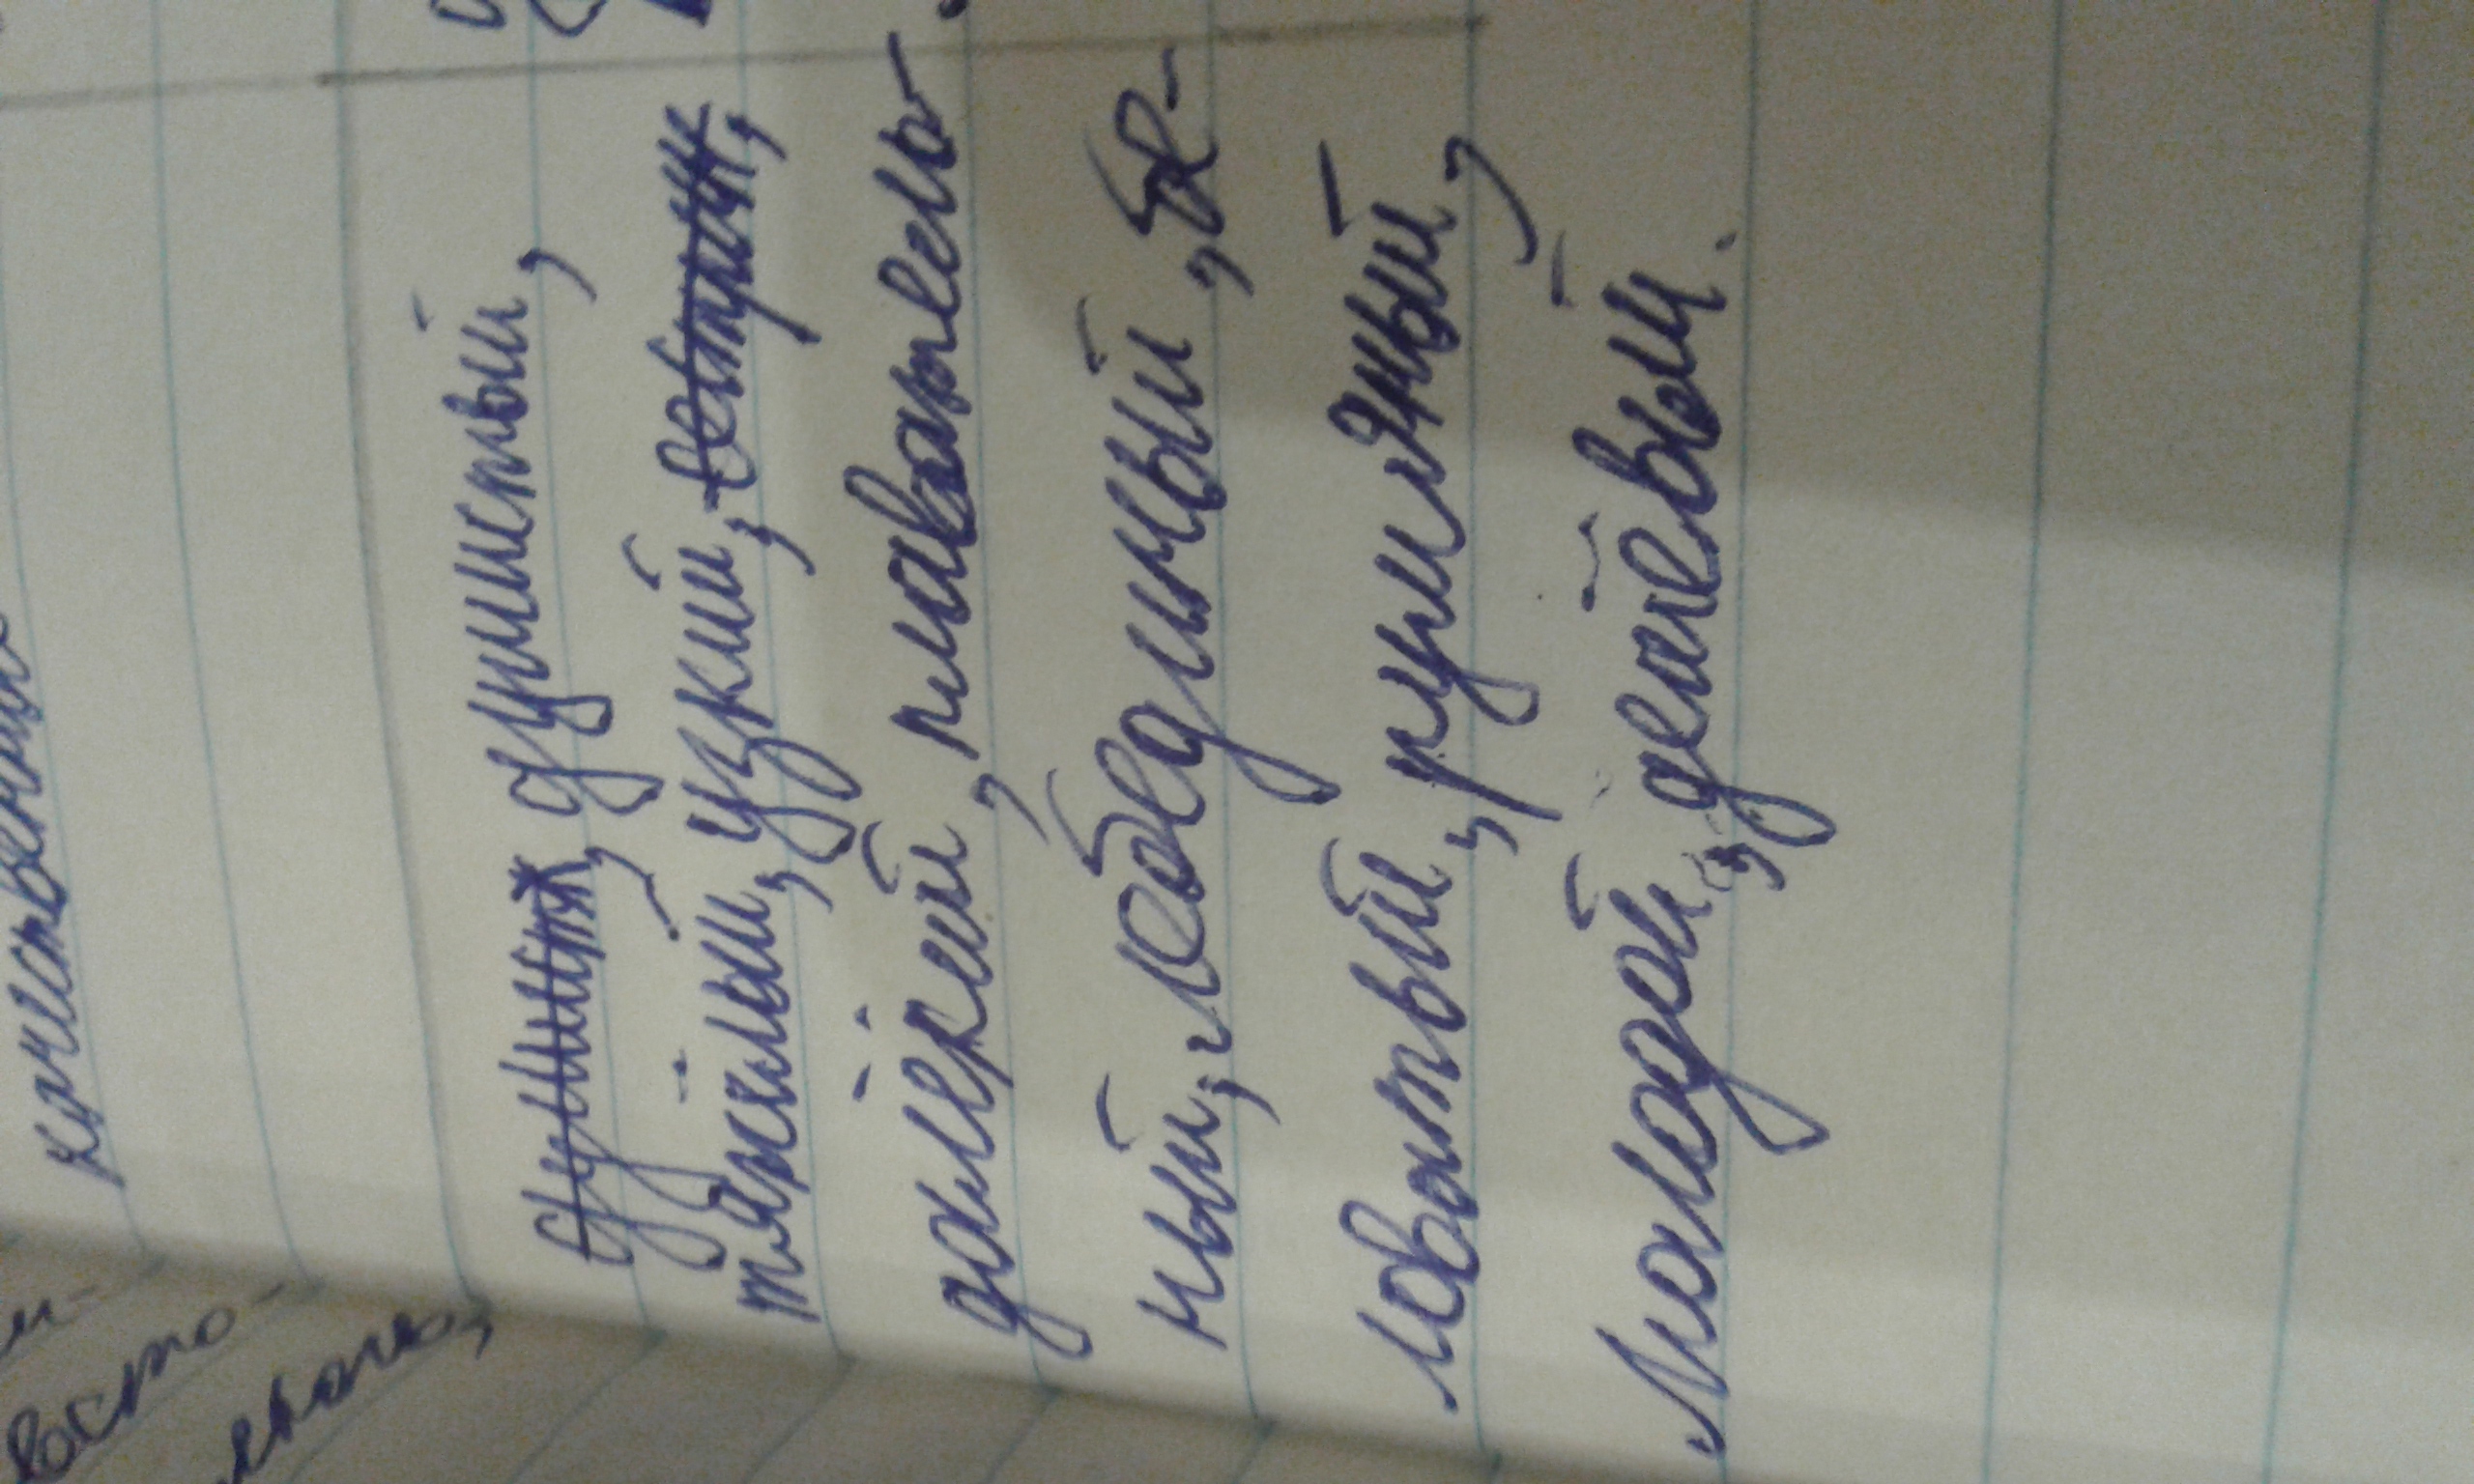 качественные
душистый,
тяжёлый, узкий,
далёкий, плаватель-
ный, лебединый, бе-
ловатый, румяный,
молодой, дешёвый.